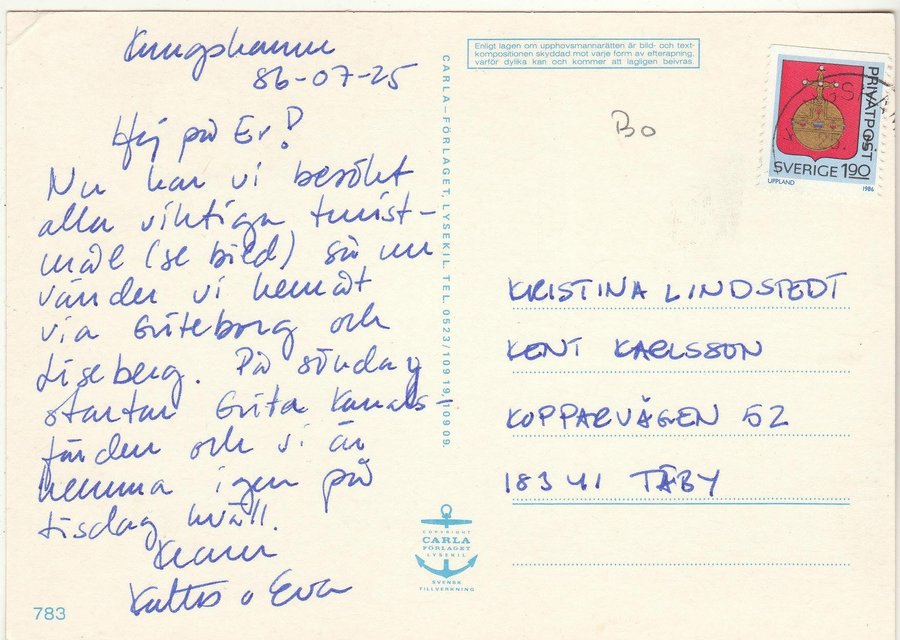 Kungshamn
86-07-25
Hej på Er!
Nu har vi besökt
alla viktiga turist-
mål (se bild) så nu
vänder vi hemåt
via Göteborg och
Liseberg. På söndag
startar Göta Kanals-
färden och vi är
hemma igen på
tisdag kväll.
Kram
o Eva
783
CARLA-FÖRLAGET, LYSEKIL. TEL. 0523/109 19, 109 09.
COPYRIGHT
CARLA
FÖRLAGET
LYSEKIL
SVENSK
TILLVERKNING
Enligt lagen om upphovsmannarätten är bild- och text-
kompositionen skyddad mot varje form av efterapning,
varför dylika kan och kommer att lagligen beivras.
Bo
PRIVATPOST
SVERIGE 1.90
UPPLAND
1986
KRISTINA LINDSTEDT
KENT KARLSSON
KOPPARVÄGEN 52
183 41 TÄBY